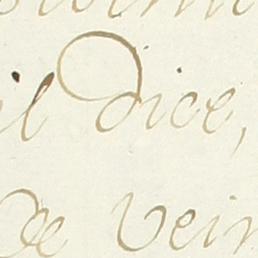 il dice,
De Vein